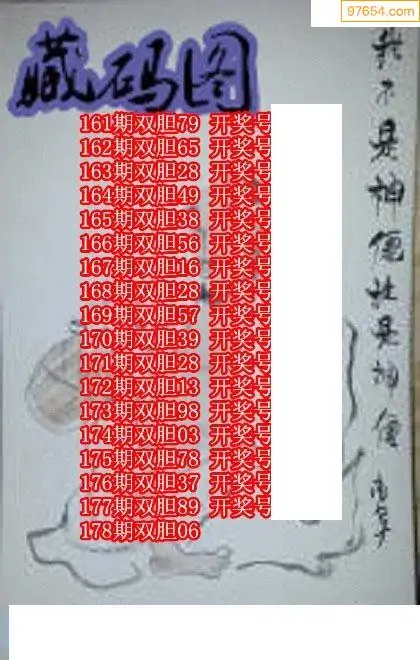 97654.com
藏码图
161期双胆79 开奖号
162期双胆65 开奖号
163期双胆28 开奖号
164期双胆49 开奖号
165期双胆38 开奖号
166期双胆56 开奖号
167期双胆16 开奖号
168期双胆28 开奖号
169期双胆57 开奖号
170期双胆39 开奖号
171期双胆28 开奖号
172期双胆13 开奖号
173期双胆98 开奖号
174期双胆03 开奖号
175期双胆78 开奖号
176期双胆37 开奖号
177期双胆89 开奖号
178期双胆06
我不是神